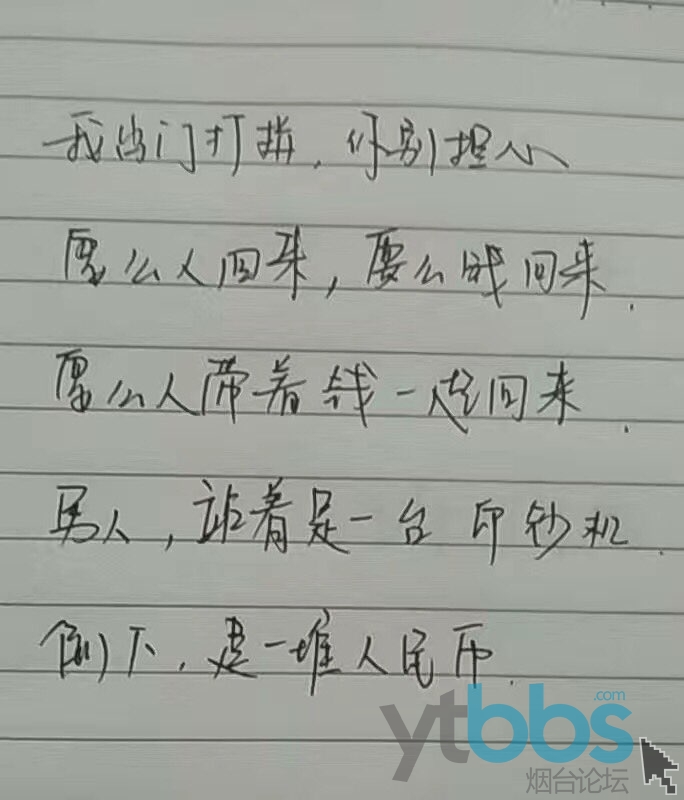 我出门打拼，你别担心
要么人回来，要么钱回来.
要么人带着钱一起回来.
男人，站着是一台印钞机.
倒下，是一堆人民币.
ytbbs.com
烟台论坛